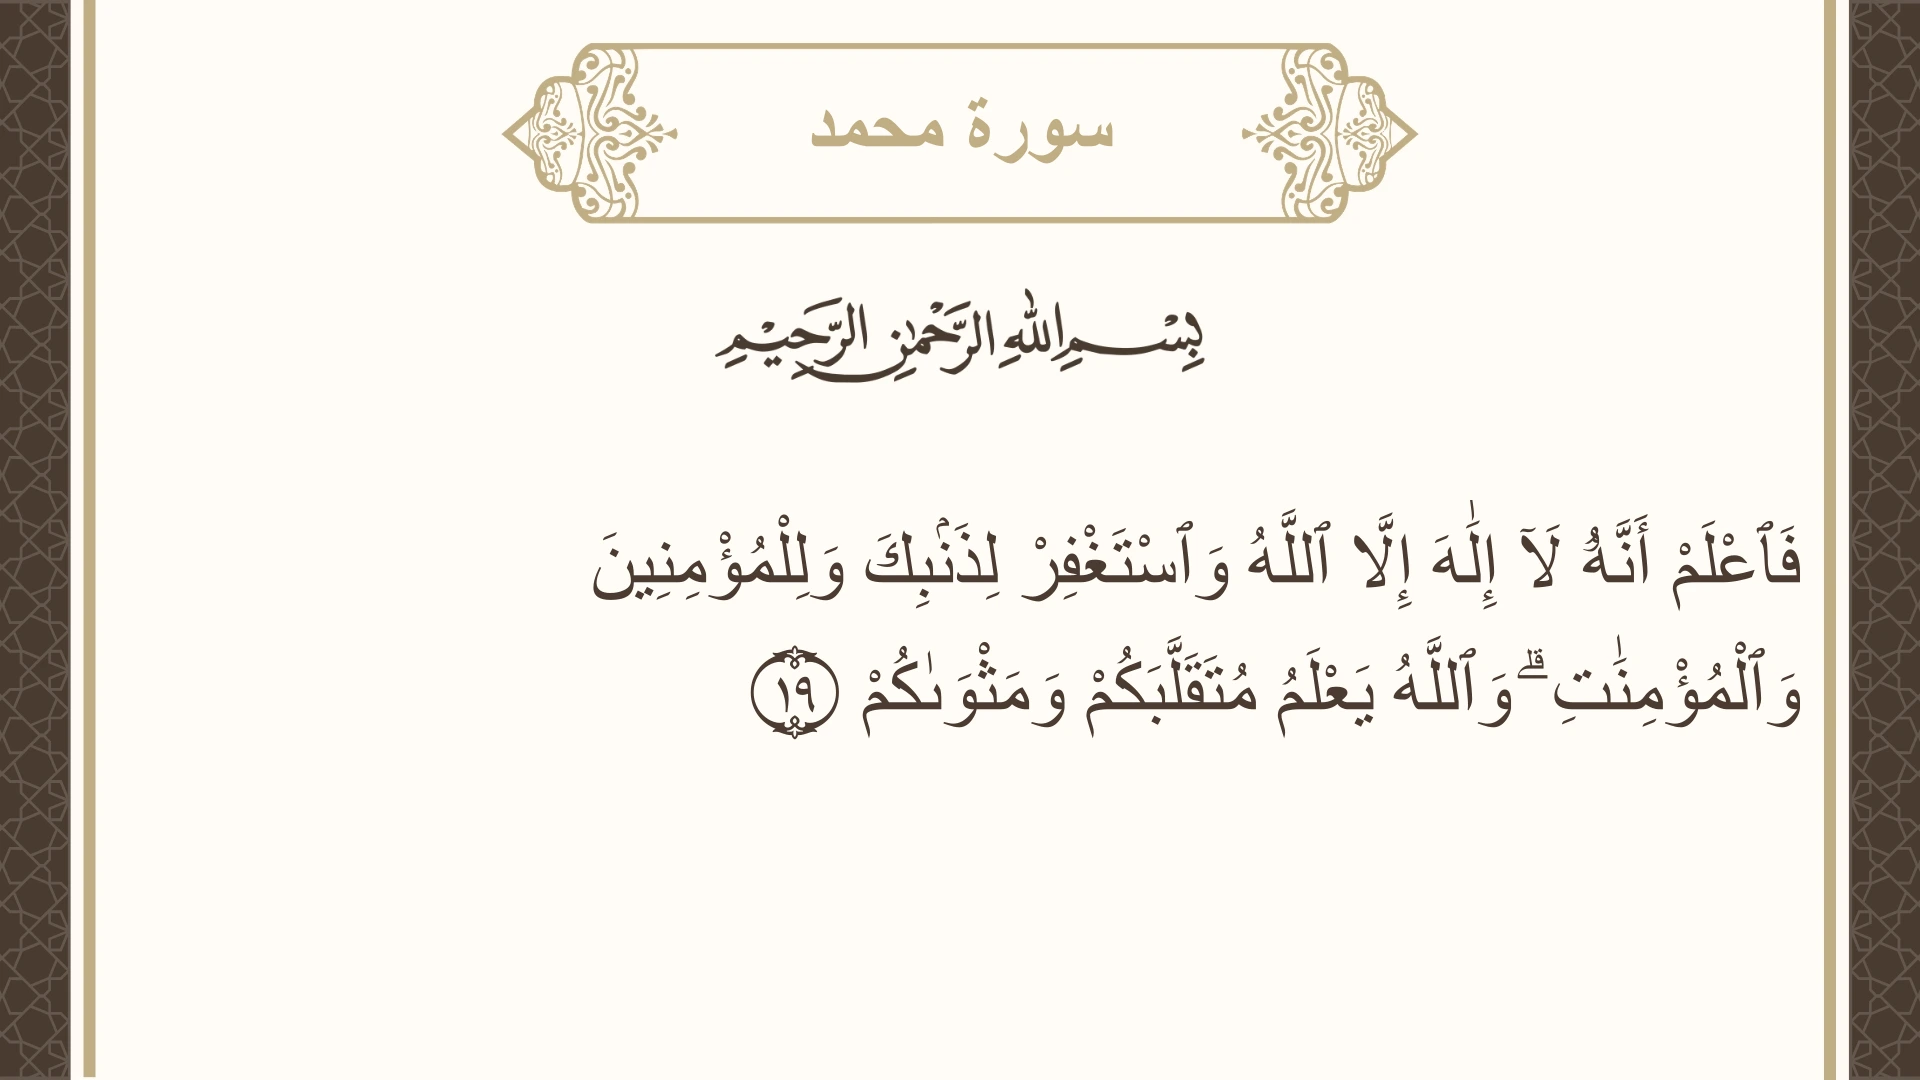 سورة محمد
بِسْمِ اللهِ الرَّحْمٰنِ الرَّحِيْمِ
فَٱعْلَمْ أَنَّهُۥ لَآ إِلَٰهَ إِلَّا ٱللَّهُ وَٱسْتَغْفِرْ لِذَنۢبِكَ وَلِلْمُؤْمِنِينَ
وَٱلْمُؤْمِنَٰتِ ۗ وَٱللَّهُ يَعْلَمُ مُتَقَلَّبَكُمْ وَمَثْوَىٰكُمْ ١٩